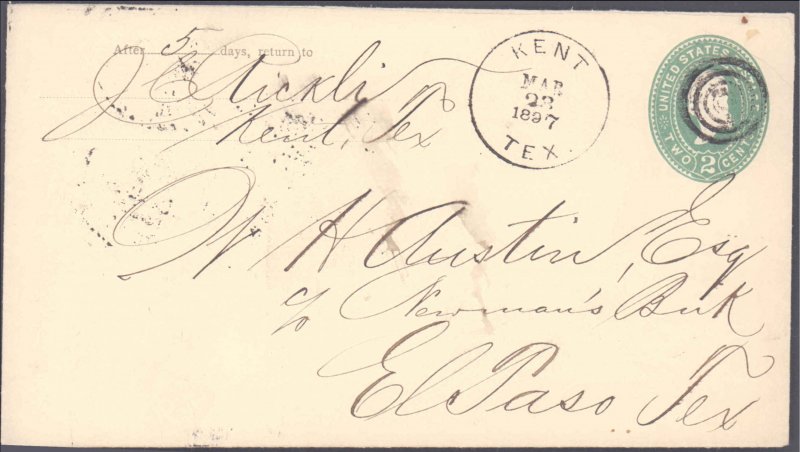 After 5 days, return to
J C Stickli
Kent, Tex
KENT
MAR
23
1897
TEX
UNITED STATES
TWO 2 CENTS
W H Austin, Esq
c/o Newman's Bnk
El Paso Tex